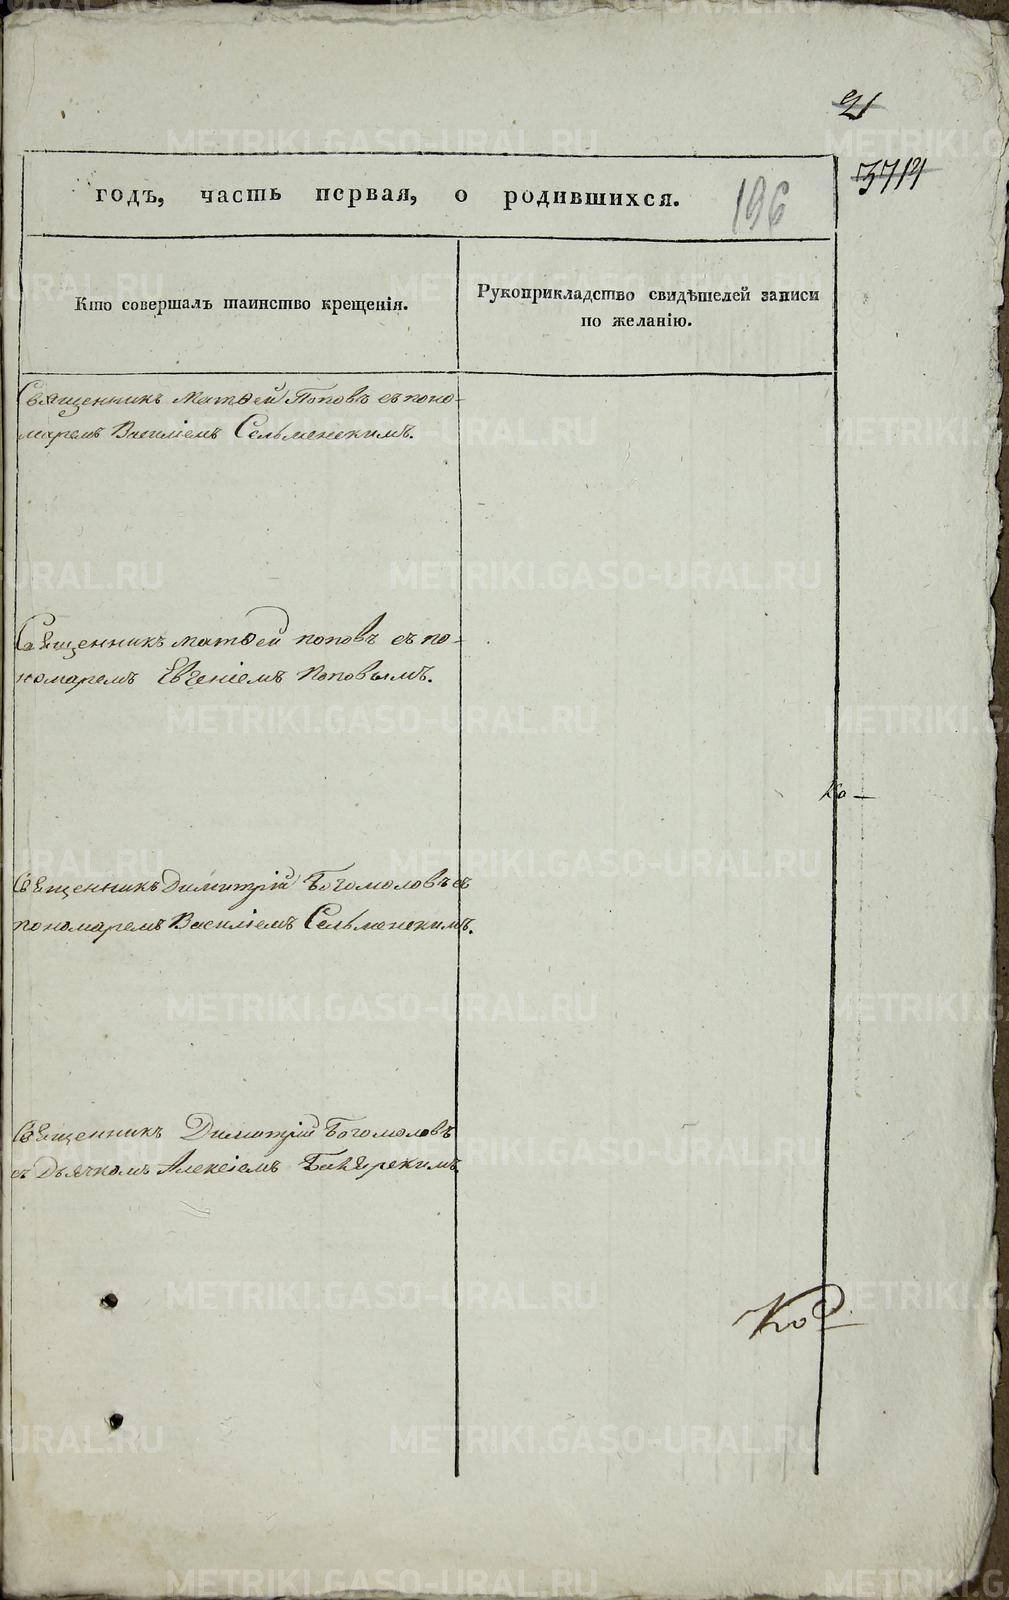 21
3714
годъ, часть первая, о родившихся.
196
Кто совершалъ таинство крещенія.
Рукоприкладство свидѣтелей записи
по желанію.
Священникъ Матѳей Поповъ съ поно-
маремъ Василіемъ Сельменскимъ.
Священникъ Матѳей Поповъ съ по-
номаремъ Евгеніемъ Поповымъ.
Ко —
Священникъ Димитрій Богомоловъ съ
пономаремъ Василіемъ Сельменскимъ.
Священникъ Димитрій Богомоловъ
съ Дьячкомъ Алексіемъ
METRIKI.GASO-URAL.RU